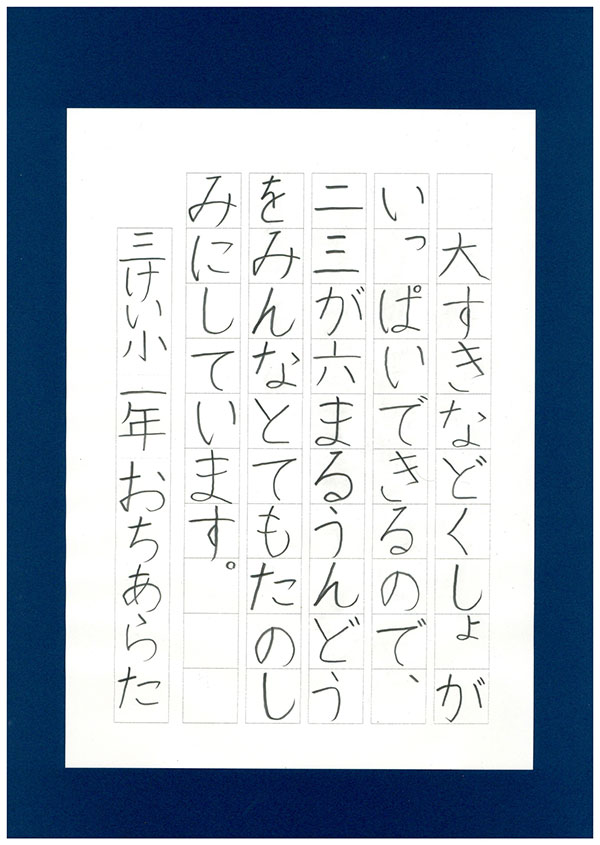 大すきなどくしょが
いっぱいできるので、
二三が六まるうんどう
をみんなとてもたのし
みにしています。
三けい小 一年 おちあらた